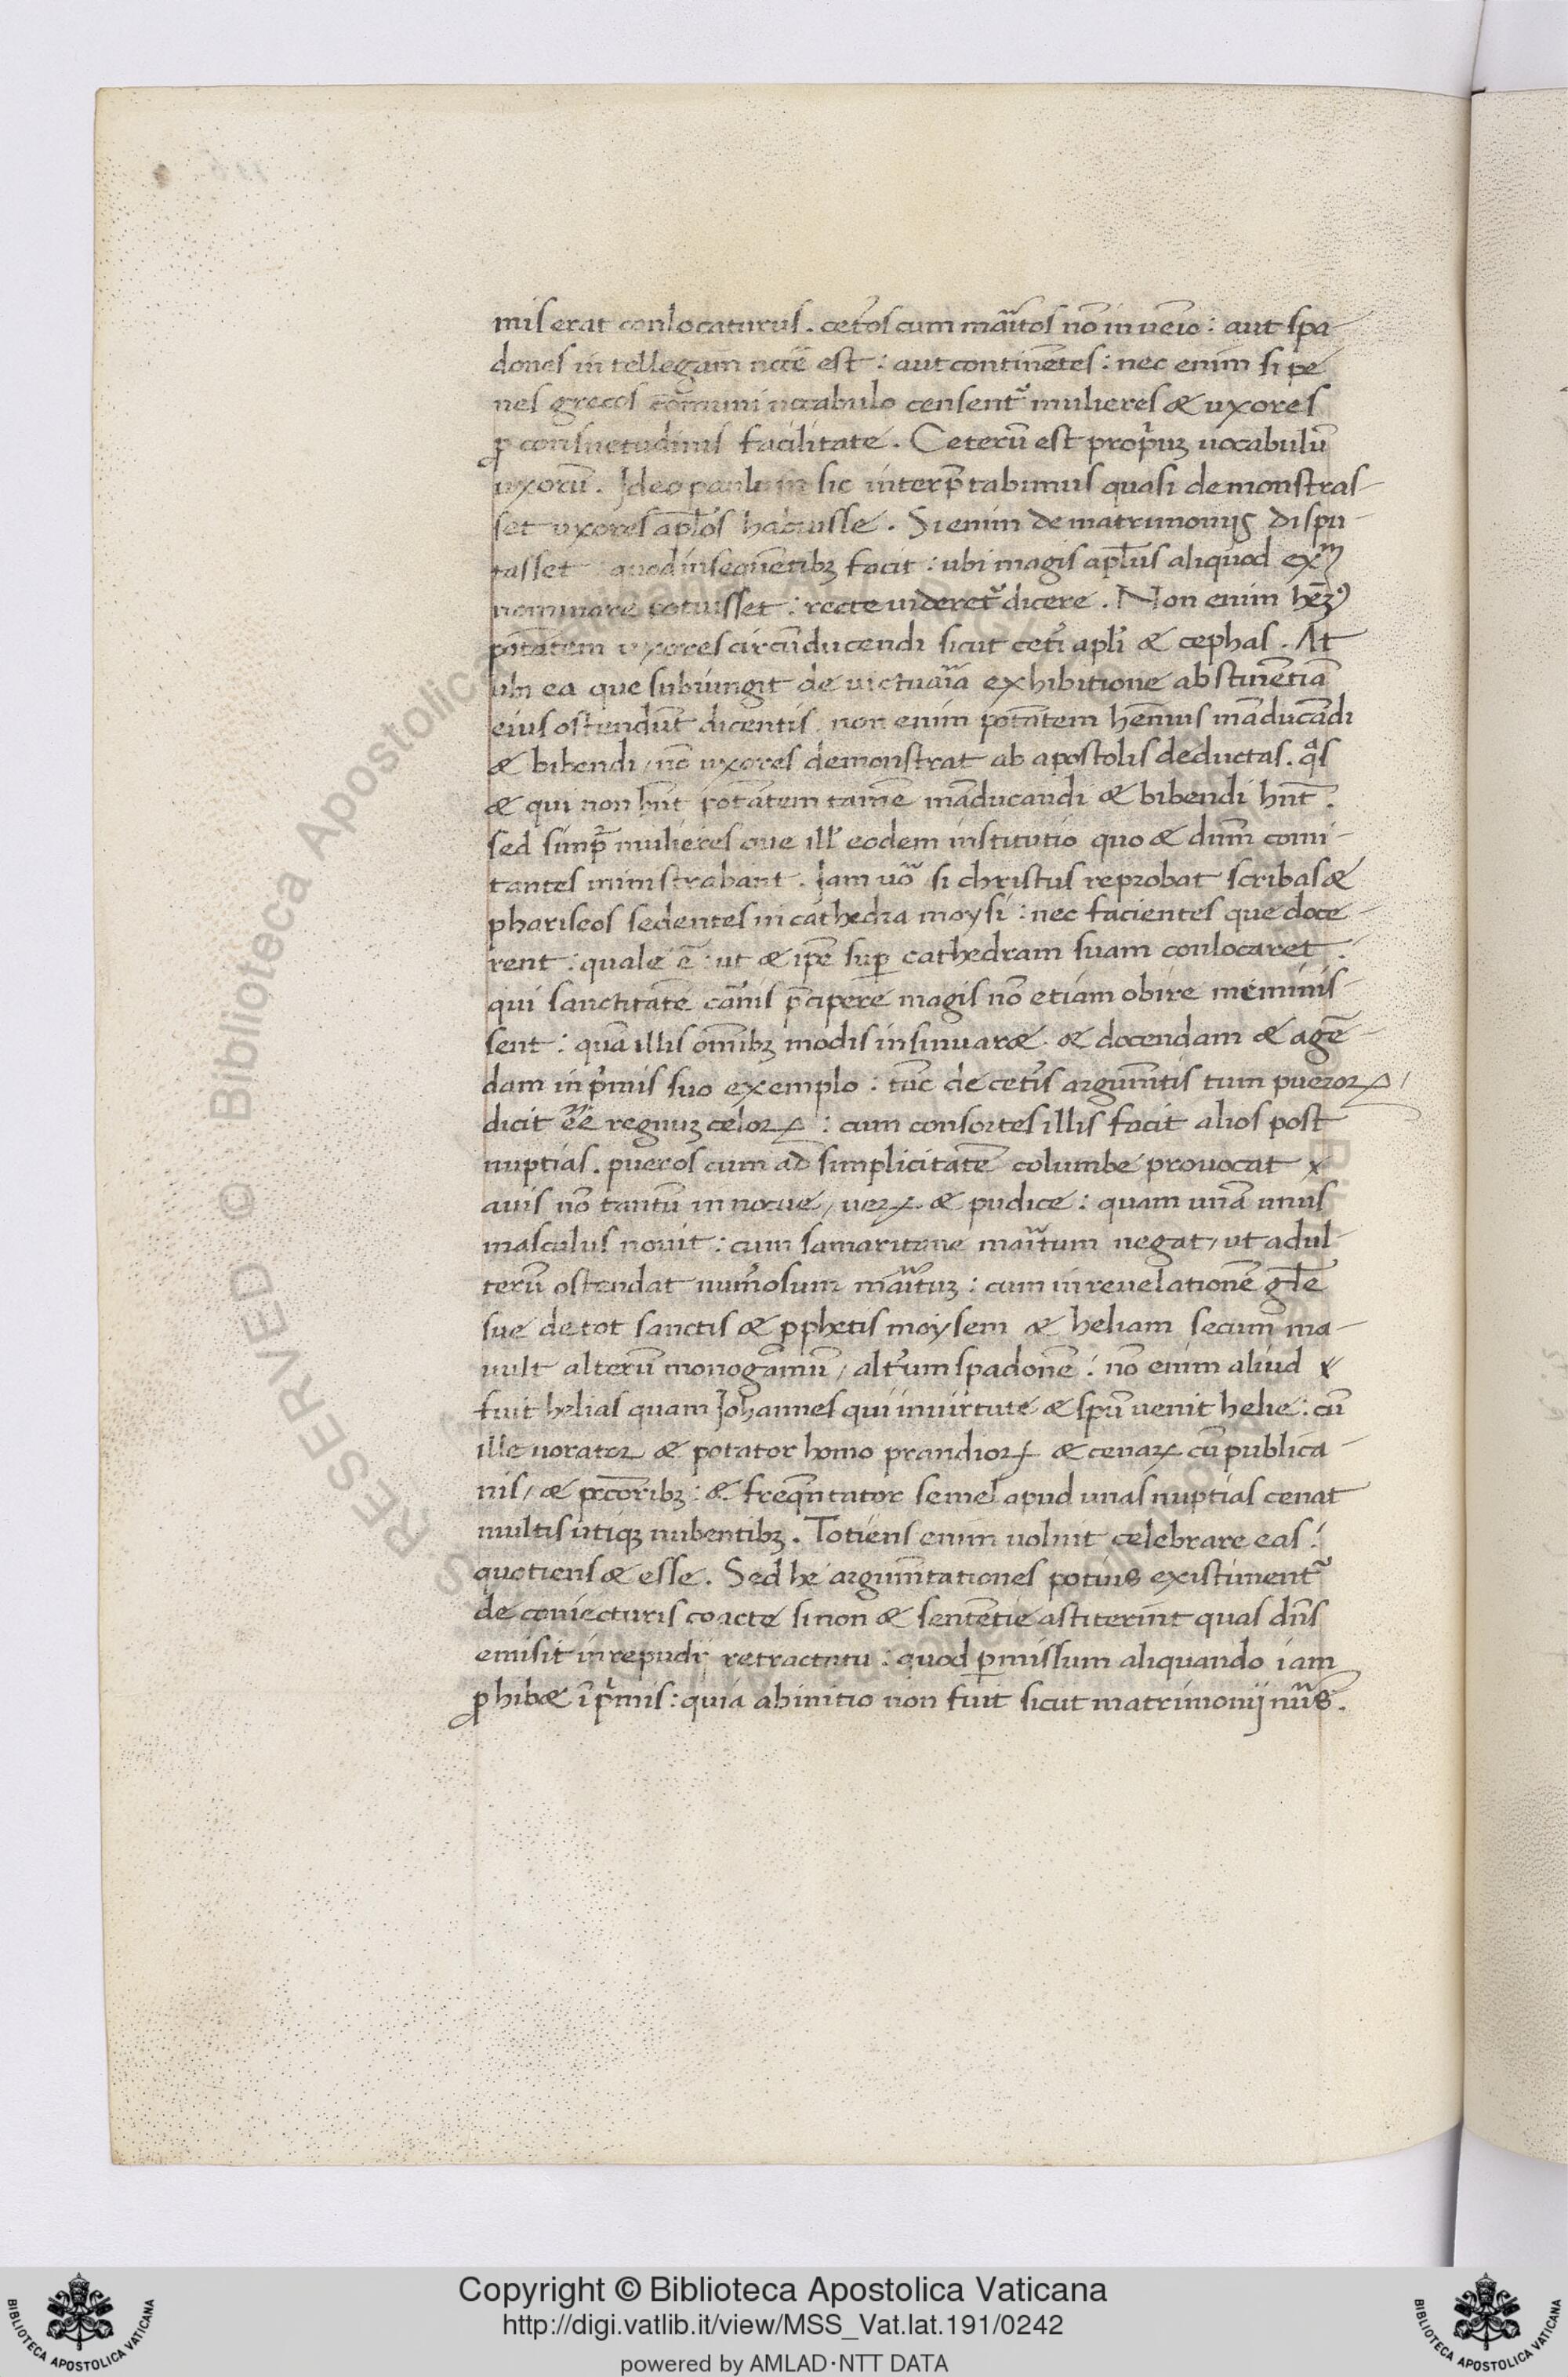 miserat conlocaturus. cet̉os cum maͥtos nō inuēio: aut spa-
dones intellegam ncc̄e est: aut contin̄etes: nec enim si pe
nes grecos cōmuni uocabulo censentᷣ mulieres & uxores
ꝓ consuetudinis facilitate. Ceterū est propͥuꝫ uocabulū
uxorū. Ideo paulum sic interp̄tabimus quasi demonstras-
set uxores apl̄os habuisse. Si enim de matrimoniis dispu-
tasset: quod in sequētibꝫ facit: ubi magis apl̄us aliquod exᵐ
nominare potuisset: recte uideretᷣ dicere. Non enim hēmꝰ
ptātem uxores circūducendi sicut cet̉i apl̄i & cephas. At
ubi ea que subiungit de uictuaͥa exhibitione abstinētiā
eius ostendūt dicentis, non enim ptātem hēmus māducādi
& bibendi, nō uxores demonstrat ab apostolis deductas. qᷤs
& qui non hn̄t ptātem tamē māducandi & bibendi hn̄t.
sed simpͬ mulieres que ill̓ eodem institutio quo & dnm̄ comi-
tantes ministrabant. Iam uͦo si christus reprobat scribas &
phariseos sedentes in cathedra moysi: nec facientes que doce-
rent: quale ē: ut & ip̄e suꝑ cathedram suam conlocaret:
qui sanctitatē carnis p̄cipere magis nō etiam obire meminis-
sent: quā illis om̄ibꝫ modis insinuar& & docendam & agē-
dam inpͥmis suo exemplo: tūc de cet̉is argum̄tis tum pueroꝝ
dicit ēe regnuꝫ celoꝝ: cum consortes illis facit alios post
nuptias. pueros cum ad simplicitatē columbe prouocat
auis nō tantū innocue, ueꝝ & pudice: quam unā unus
masculus nouit: cum samaritane maͥtum negat, ut adul-
terū ostendat num̉osum maͥtuꝫ: cum in reuelationē gl̄e
sue de tot sanctis & ꝓphetis moysem & heliam secum ma-
uult alterū monogamū, alt̉um spadonē: nō enim aliud
fuit helias quam Iohannes qui in uirtute & spū uenit helie: cū
ille uorator & potator homo prandioꝝ & cenaꝝ cū publica-
nis, & pcc̄oribꝫ: & freqn̄tator semel apud unas nuptias cenat
multis utiqꝫ nubentibꝫ. Totiens enim uoluit celebrare eas:
quotiens & esse. Sed he argum̄tationes potius existimentᷣ
de coniecturis coacte si non & sentētie astiterint quas dn̄s
emisit in repudij retractatu: quod ꝑmissum aliquando iam
ꝓhib& īpͥmis: quia ab initio non fuit sicut matrimonij nūs.
Copyright © Biblioteca Apostolica Vaticana
http://digi.vatlib.it/view/MSS_Vat.lat.191/0242
powered by AMLAD·NTT DATA
BIBLIOTECA APOSTOLICA VATICANA
BIBLIOTECA APOSTOLICA VATICANA